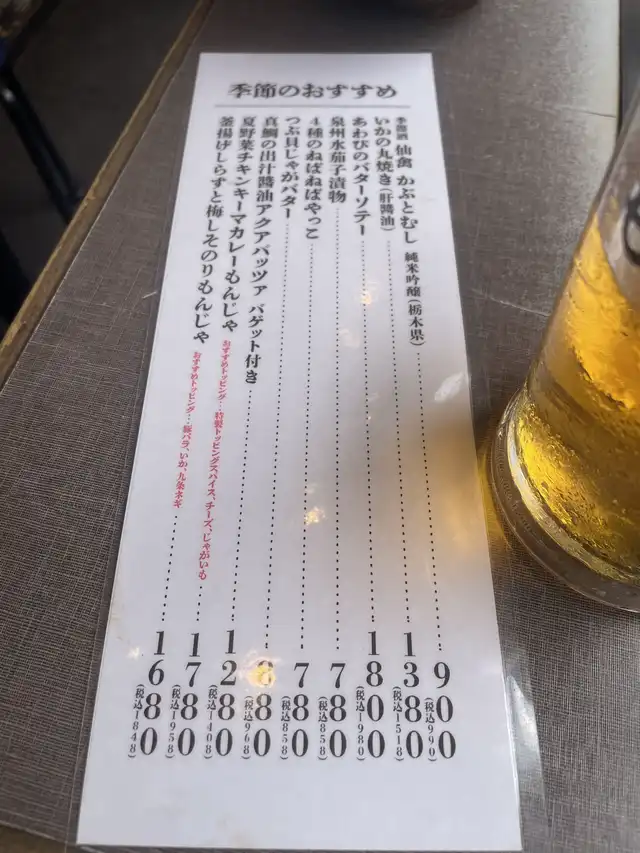 季節のおすすめ
季節酒 仙禽 かぶとむし 純米吟醸(栃木県) 900(税込990)
いかの丸焼き(肝醤油) 1380(税込1518)
あわびのバターソテー 1800(税込1980)
泉州水茄子漬物 780(税込858)
4種のねばねばやっこ 780(税込858)
つぶ貝じゃがバター 880(税込968)
真鯛の出汁醤油アクアパッツァ バゲット付き 1280(税込1408)
夏野菜チキンキーマカレーもんじゃ おすすめトッピング…特製トッピングスパイス、チーズ、じゃがいも 1780(税込1958)
釜揚げしらすと梅しそのりもんじゃ おすすめトッピング…豚バラ、いか、九条ネギ 1680(税込1848)